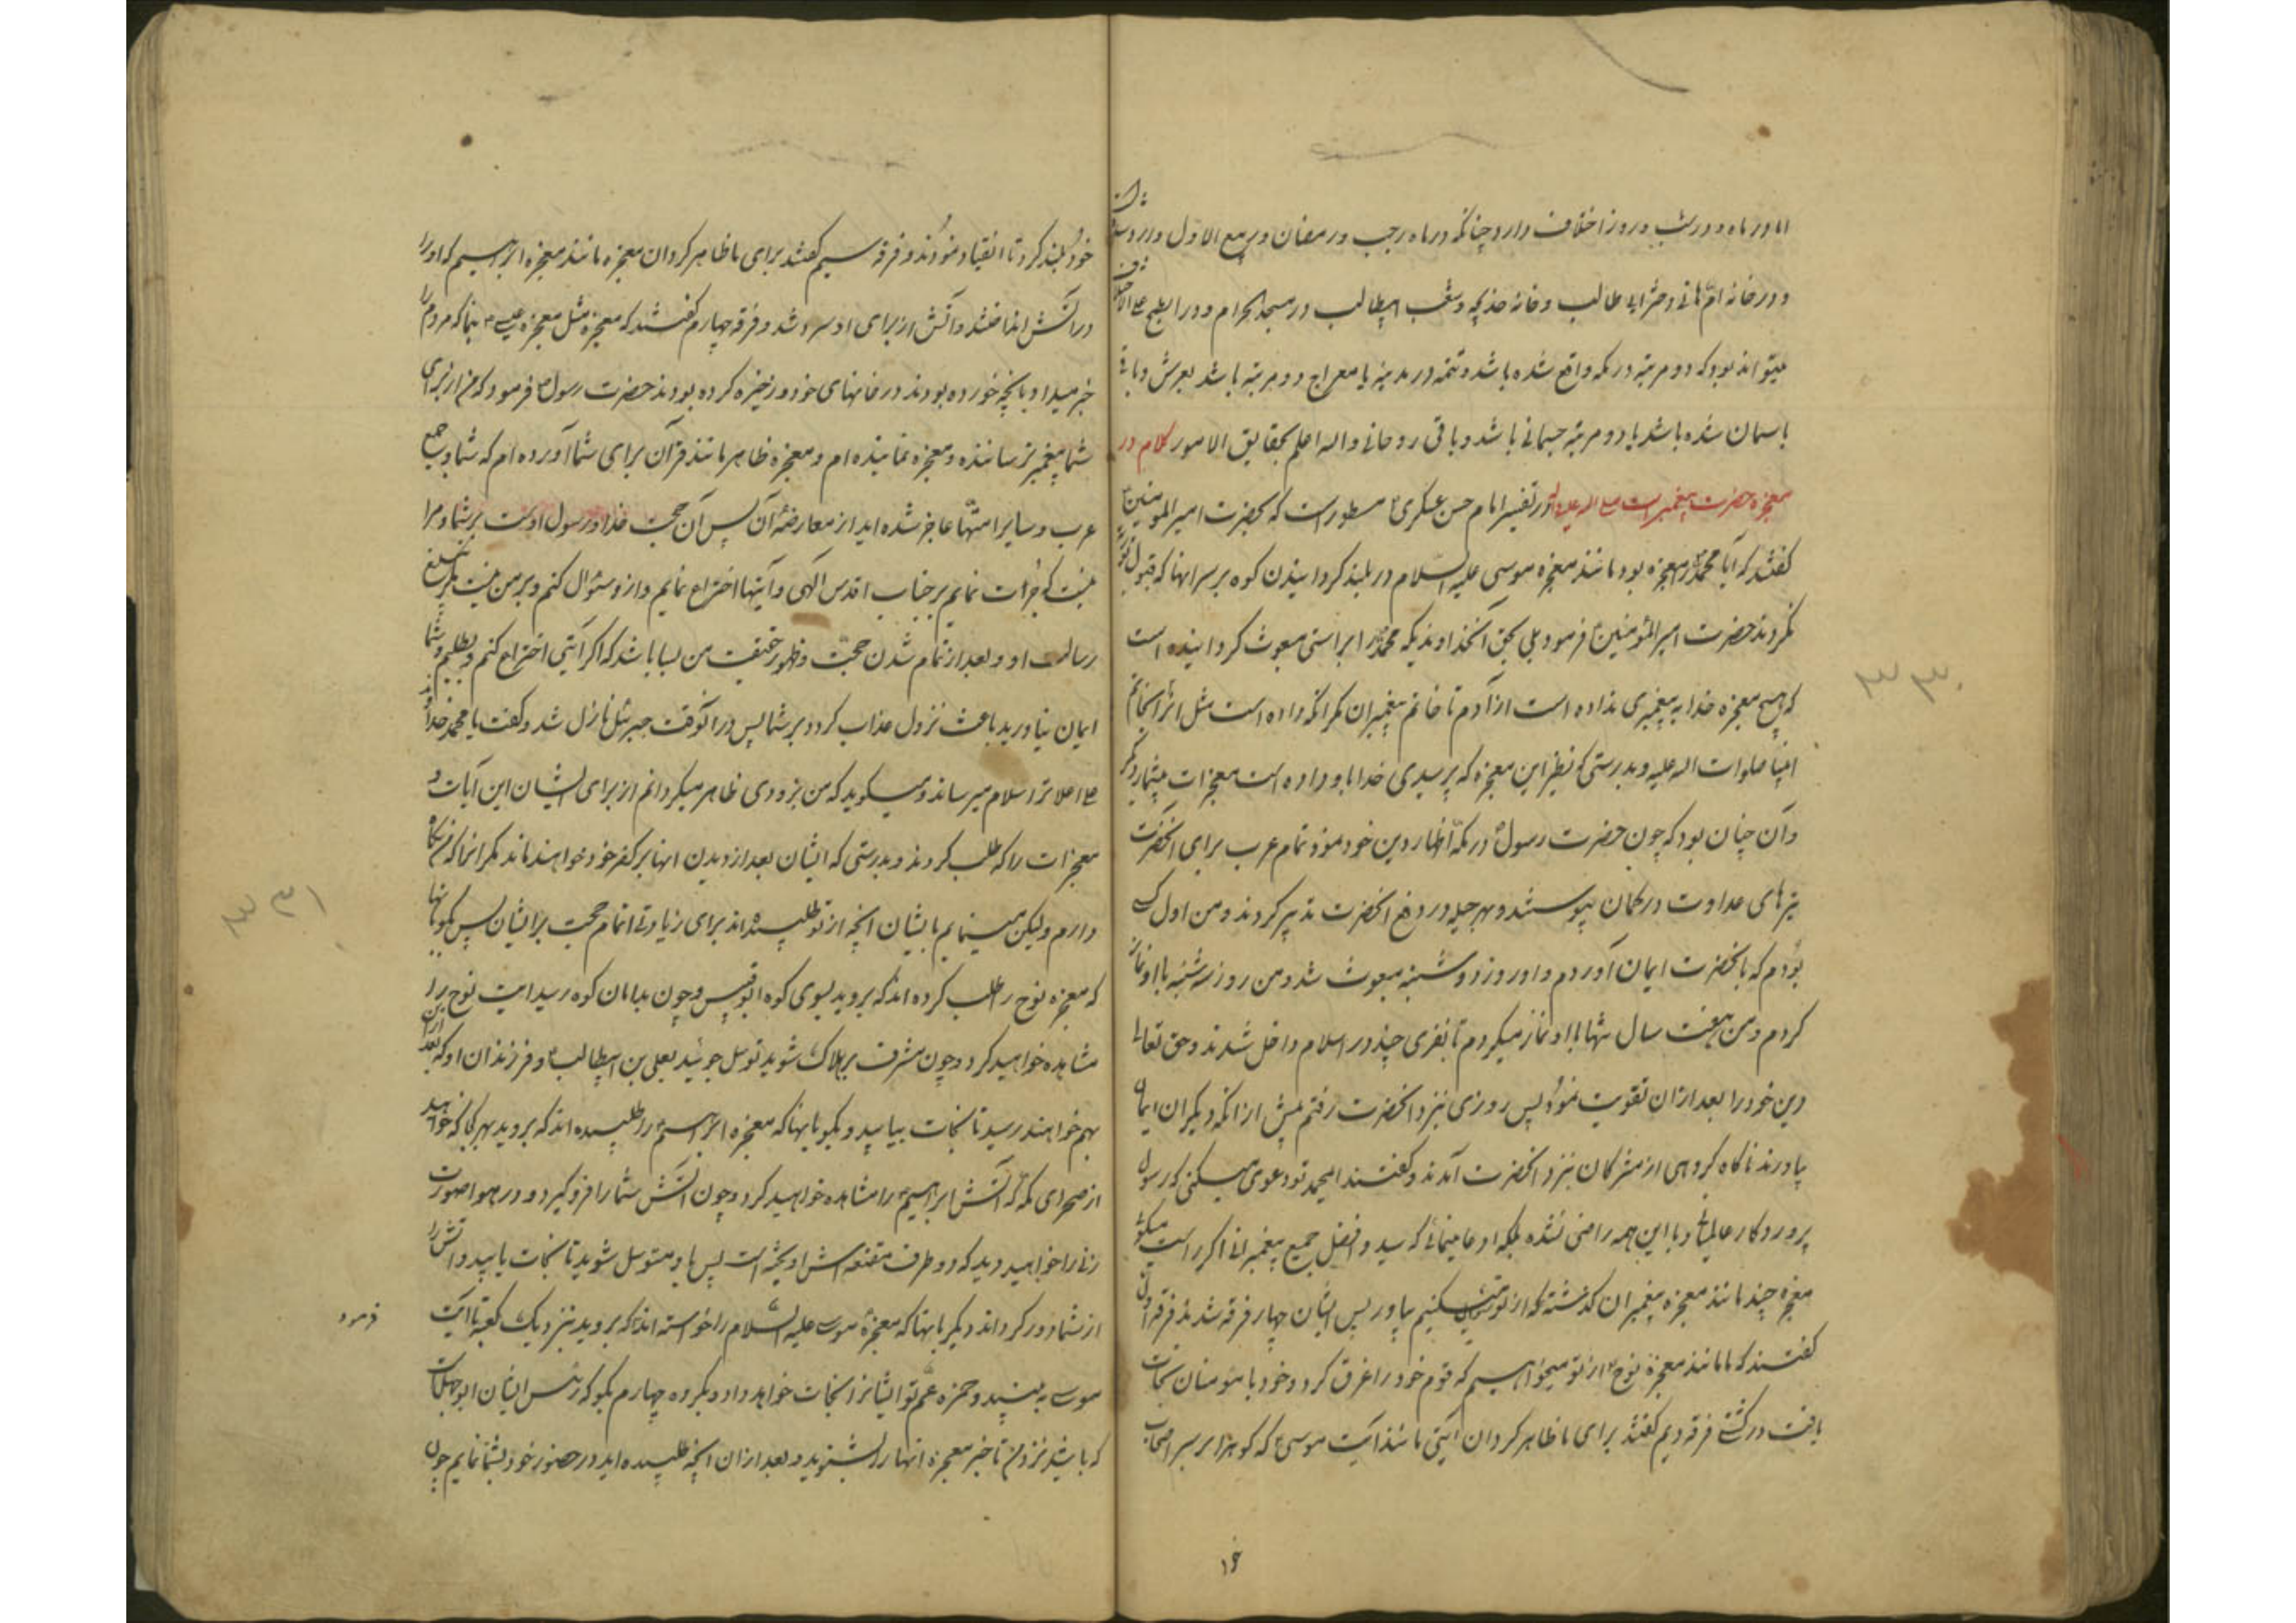 اما در ماه و در شب و روز اختلاف دارد چنانکه در ماه رجب و رمضان و ربیع الاول وارد شده
و در خانه ام هانی دختر ابی طالب و خانه خدیجه و شعب ابیطالب و مسجد الحرام و در ابطح
میتواند بود که دو مرتبه در مکه واقع شده باشد و تتمه در مدینه یا معراج دو مرتبه باشد بعرش و باقی
باسمان شده باشد یا دو مرتبه جسمانی باشد و باقی روحانی و اله اعلم بحقایق الامور کلام در
معجزه حضرت پیغمبر است در تفسیر امام حسن عسکری ع مسطور است که بحضرت امیر المومنین
گفتند که آیا محمد را معجزه بود مانند معجزه موسی علیه السلام در بلند گردانیدن کوه بر سر انها که قبول توریة
نکردند حضرت امیر المؤمنین فرمود بلی بحق آنخداوندیکه محمد را براستی مبعوث گردانیده است
که هیچ معجزه خدا به پیغمبری نداده است از آدم تا خاتم پیغمبران مگر انکه داده است مثل انرا بخاتم
انبیا صلوات اله علیه و بدرستی که نظیر این معجزه که پرسیدی خدا باو داده است معجزات بیشمار دیگر
و آن چنان بود که چون حضرت رسول در مکه اظهار دین خود نمود تمام عرب برای انحضرت
تیرهای عداوت در کمان پیوستند و بهر حیله در دفع انحضرت تدبیر کردند و من اول کسی
بودم که بانحضرت ایمان آوردم و او روز دوشنبه مبعوث شد و من روز سه شنبه با او نماز
کردم و من هفت سال تنها با او نماز میکردم تا نفری چند در اسلام داخل شدند و حق تعالی
دین خود را بعد از ان تقویت نمود پس روزی بنزد انحضرت رفتم پیش از انکه دیگران ایمان
بیاورند ناگاه گروهی از مشرکان بنزد انحضرت آمدند و گفتند ایمحمد تو دعوی میکنی که رسول
پروردگار عالمیانی و با این همه راضی نشده بلکه ادعا مینمائی که سید و افضل جمیع پیغمبرانی اگر راست میگوئی
معجزه چند مانند معجزه پیغمبران گذشته که از تو میکنیم بیاور پس ایشان چهار فرقه شدند فرقه اول
گفتند که ما مانند معجزه نوح از تو میخواهیم که قوم خود را غرق کرد و خود با مؤمنان نجات
یافت در کشتی فرقه دویم گفتند برای ما ظاهر گردان آیتی مانند آیت موسی که کوه را بر سر اصحاب
۳۳۰
۱۶
خود بلند کرد تا انقیاد نمودند و فرقه سیم گفتند برای ما ظاهر گردان معجزه مانند معجزه ابراهیم که او را
در آتش انداختند و آتش از برای او سرد شد و فرقه چهارم گفتند که معجزه مثل معجزه عیسی بنما که مردم را
خبر میداد بانچه خورده بودند و در خانهای خود ذخیره کرده بودند حضرت رسول فرمود که من از برای
شما پیغمبر ترساننده و معجزه نماینده ام و معجزه ظاهر مانند قرآن برای شما آورده ام که شما و جمیع
عرب و سایر امتها عاجز شده اید از معارضه آن پس آن حجت خدا و رسول اوست بر شما و مرا
نیست که جرات نمایم بر جناب اقدس الهی و آیتها اختراع نمایم و از و سئوال کنم و بر من نیست مگر تبلیغ
رسالت او و بعد از تمام شدن حجت و ظهور حقیقت من بسا باشد که اگر آیتی اختراع کنم و بطلبم و شما
ایمان نیاورید باعث نزول عذاب گردد بر شما پس در انوقت جبرئیل نازل شد و گفت یا محمد خداوند
علی اعلا ترا سلام میرساند و میگوید که من بزودی ظاهر میگردانم از برای ایشان این آیات و
معجزات را که طلب کردند و بدرستی که ایشان بعد از دیدن انها بر کفر خود خواهند ماند مگر انها که من نگاه
دارم ولیکن مینمایم بایشان انچه از تو طلبیده اند برای زیادتی اتمام حجت بر ایشان پس بگو بانها
که معجزه نوح را طلب کرده اند که بروید بسوی کوه ابوقبیس و چون بدامان کوه رسید ایت نوح را
مشاهده خواهید کرد و چون مشرف بر هلاک شوید توسل جوئید بعلی بن ابیطالب و فرزندان او که بعد ازین
بهم خواهند رسید تا نجات بیابید و بگو بانها که معجزه ابراهیم را طلبیده اند که بروید بهر کجا که خواهید
از صحرای مکه که آتش ابراهیم را مشاهده خواهید کرد و چون آتش شما را فرو گیرد در هوا صورت
زنی را خواهید دید که دو طرف مقنعه اش اویخته است پس باو متوسل شوید تا نجات یابید و آتش را
از شما دور گرداند و بگو بانها که معجزه موسی علیه السلام را خواسته اند که بروید بنزدیک کعبه تا آیت
فرمود
موسی به بینید و حمزه عم تو ایشانرا نجات خواهد داد و بگروه چهارم بگو که رئیس ایشان ابو جهل است
که باشید نزد من تا خبر معجزه انها را بشنوید و بعد از ان انچه طلبیده اید در حضور خود بشما نمایم چون
۳۳۱